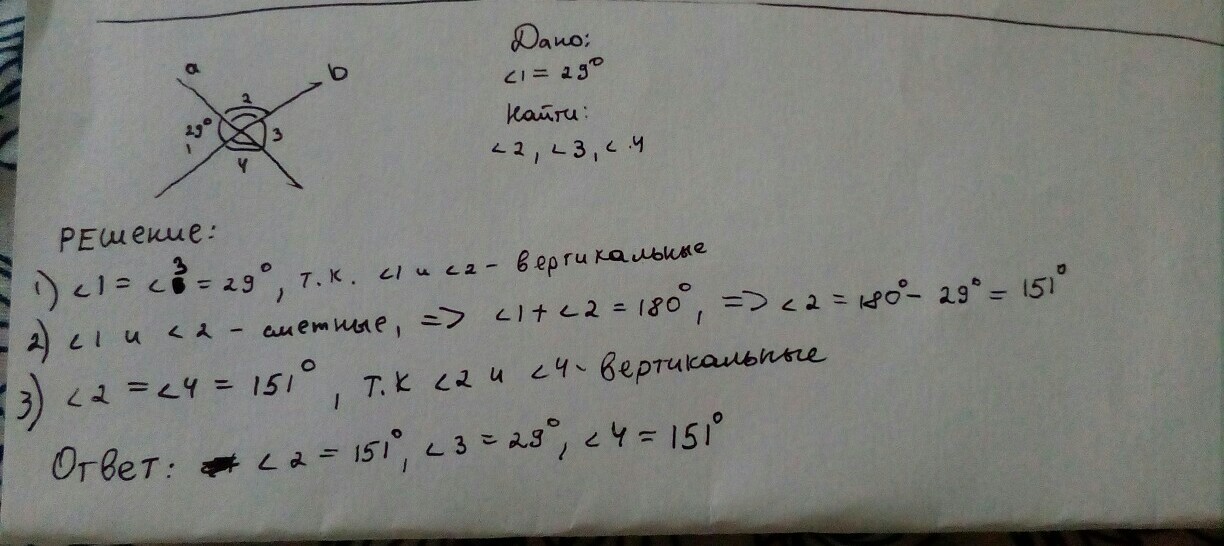 a
b
2
29°
3
1
4
Дано:
∠1 = 29°
Найти:
∠2, ∠3, ∠.4
РЕшение:
1) ∠1 = ∠3 = 29°, т.к. ∠1 и ∠2 - вертикальные
2) ∠1 и ∠2 - сметные, => ∠1 + ∠2 = 180°, => ∠2 = 180° - 29° = 151°
3) ∠2 = ∠4 = 151°, т.к ∠2 и ∠4 - вертикальные
Ответ: ∠2 = 151°, ∠3 = 29°, ∠4 = 151°